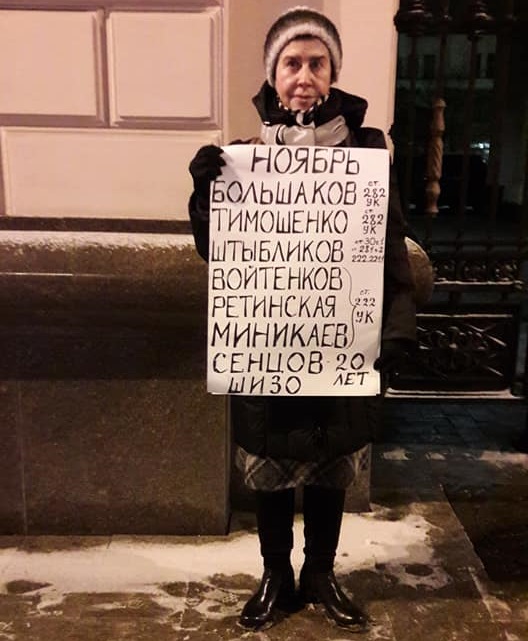 НОЯБРЬ
БОЛЬШАКОВ ст. 282 УК
ТИМОШЕНКО ст. 282 УК
ШТЫБЛИКОВ
ВОЙТЕНКОВ
РЕТИНСКАЯ ст. 222 УК
МИНИКАЕВ
СЕНЦОВ - 20 ЛЕТ
ШИЗО